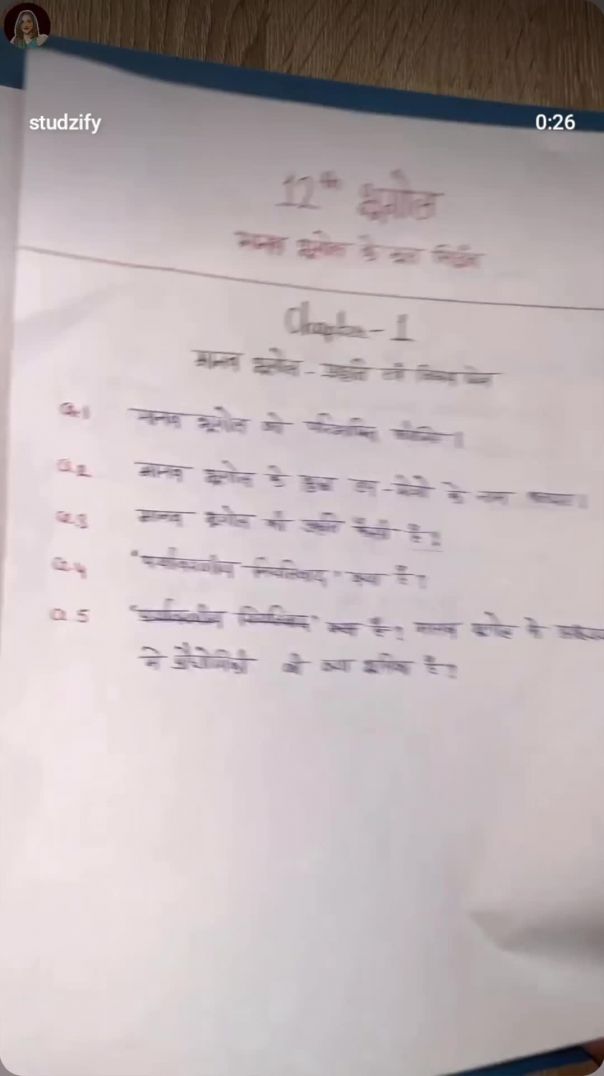 studzify
0:26
12th भूगोल
मानव भूगोल के मूल सिद्धांत
Chapter-1
मानव भूगोल - प्रकृति एवं विषय क्षेत्र
Q.1 मानव भूगोल को परिभाषित कीजिए।
Q.2 मानव भूगोल के कुछ उप-क्षेत्रों के नाम बताइए।
Q.3 मानव भूगोल की प्रकृति कैसी है?
Q.4 "पर्यावरणीय नियतिवाद" क्या है?
Q.5 क्या है? मानव भूगोल के
में प्रौद्योगिकी की क्या भूमिका है?